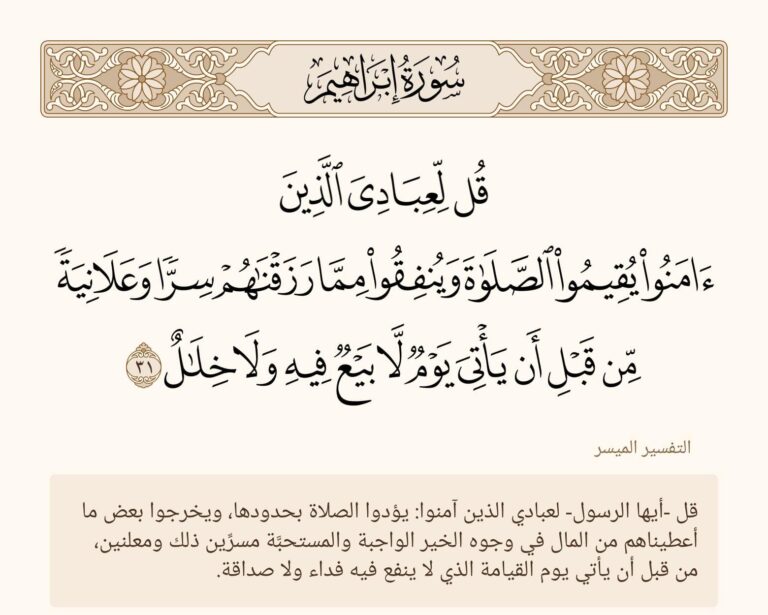 سُورَةُ إِبْرَاهِيمَ
قُل لِّعِبَادِىَ ٱلَّذِينَ
ءَامَنُوا۟ يُقِيمُوا۟ ٱلصَّلَوٰةَ وَيُنفِقُوا۟ مِمَّا رَزَقْنَٰهُمْ سِرًّا وَعَلَانِيَةً
مِّن قَبْلِ أَن يَأْتِىَ يَوْمٌ لَّا بَيْعٌ فِيهِ وَلَا خِلَٰلٌ ٣١
التفسير الميسر
قل -أيها الرسول- لعبادي الذين آمنوا: يؤدوا الصلاة بحدودها، ويخرجوا بعض ما
أعطيناهم من المال في وجوه الخير الواجبة والمستحبَّة مسرِّين ذلك ومعلنين،
من قبل أن يأتي يوم القيامة الذي لا ينفع فيه فداء ولا صداقة.